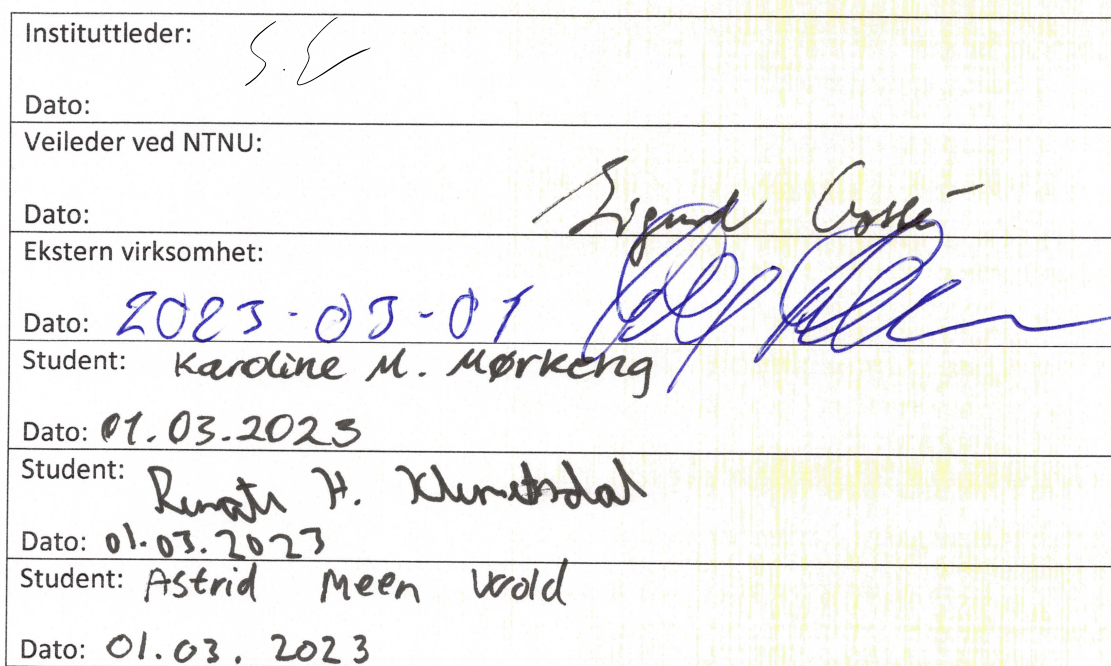 Instituttleder:
S.E
Dato:
Veileder ved NTNU:
Sigurd
Dato:
Ekstern virksomhet:
Dato: 2023-03-01
Student: Karoline M. Mørkeng
Dato: 01.03.2023
Student: H. Klemetsdal
Dato: 01.03.2023
Student: Astrid Meen Wold
Dato: 01.03.2023